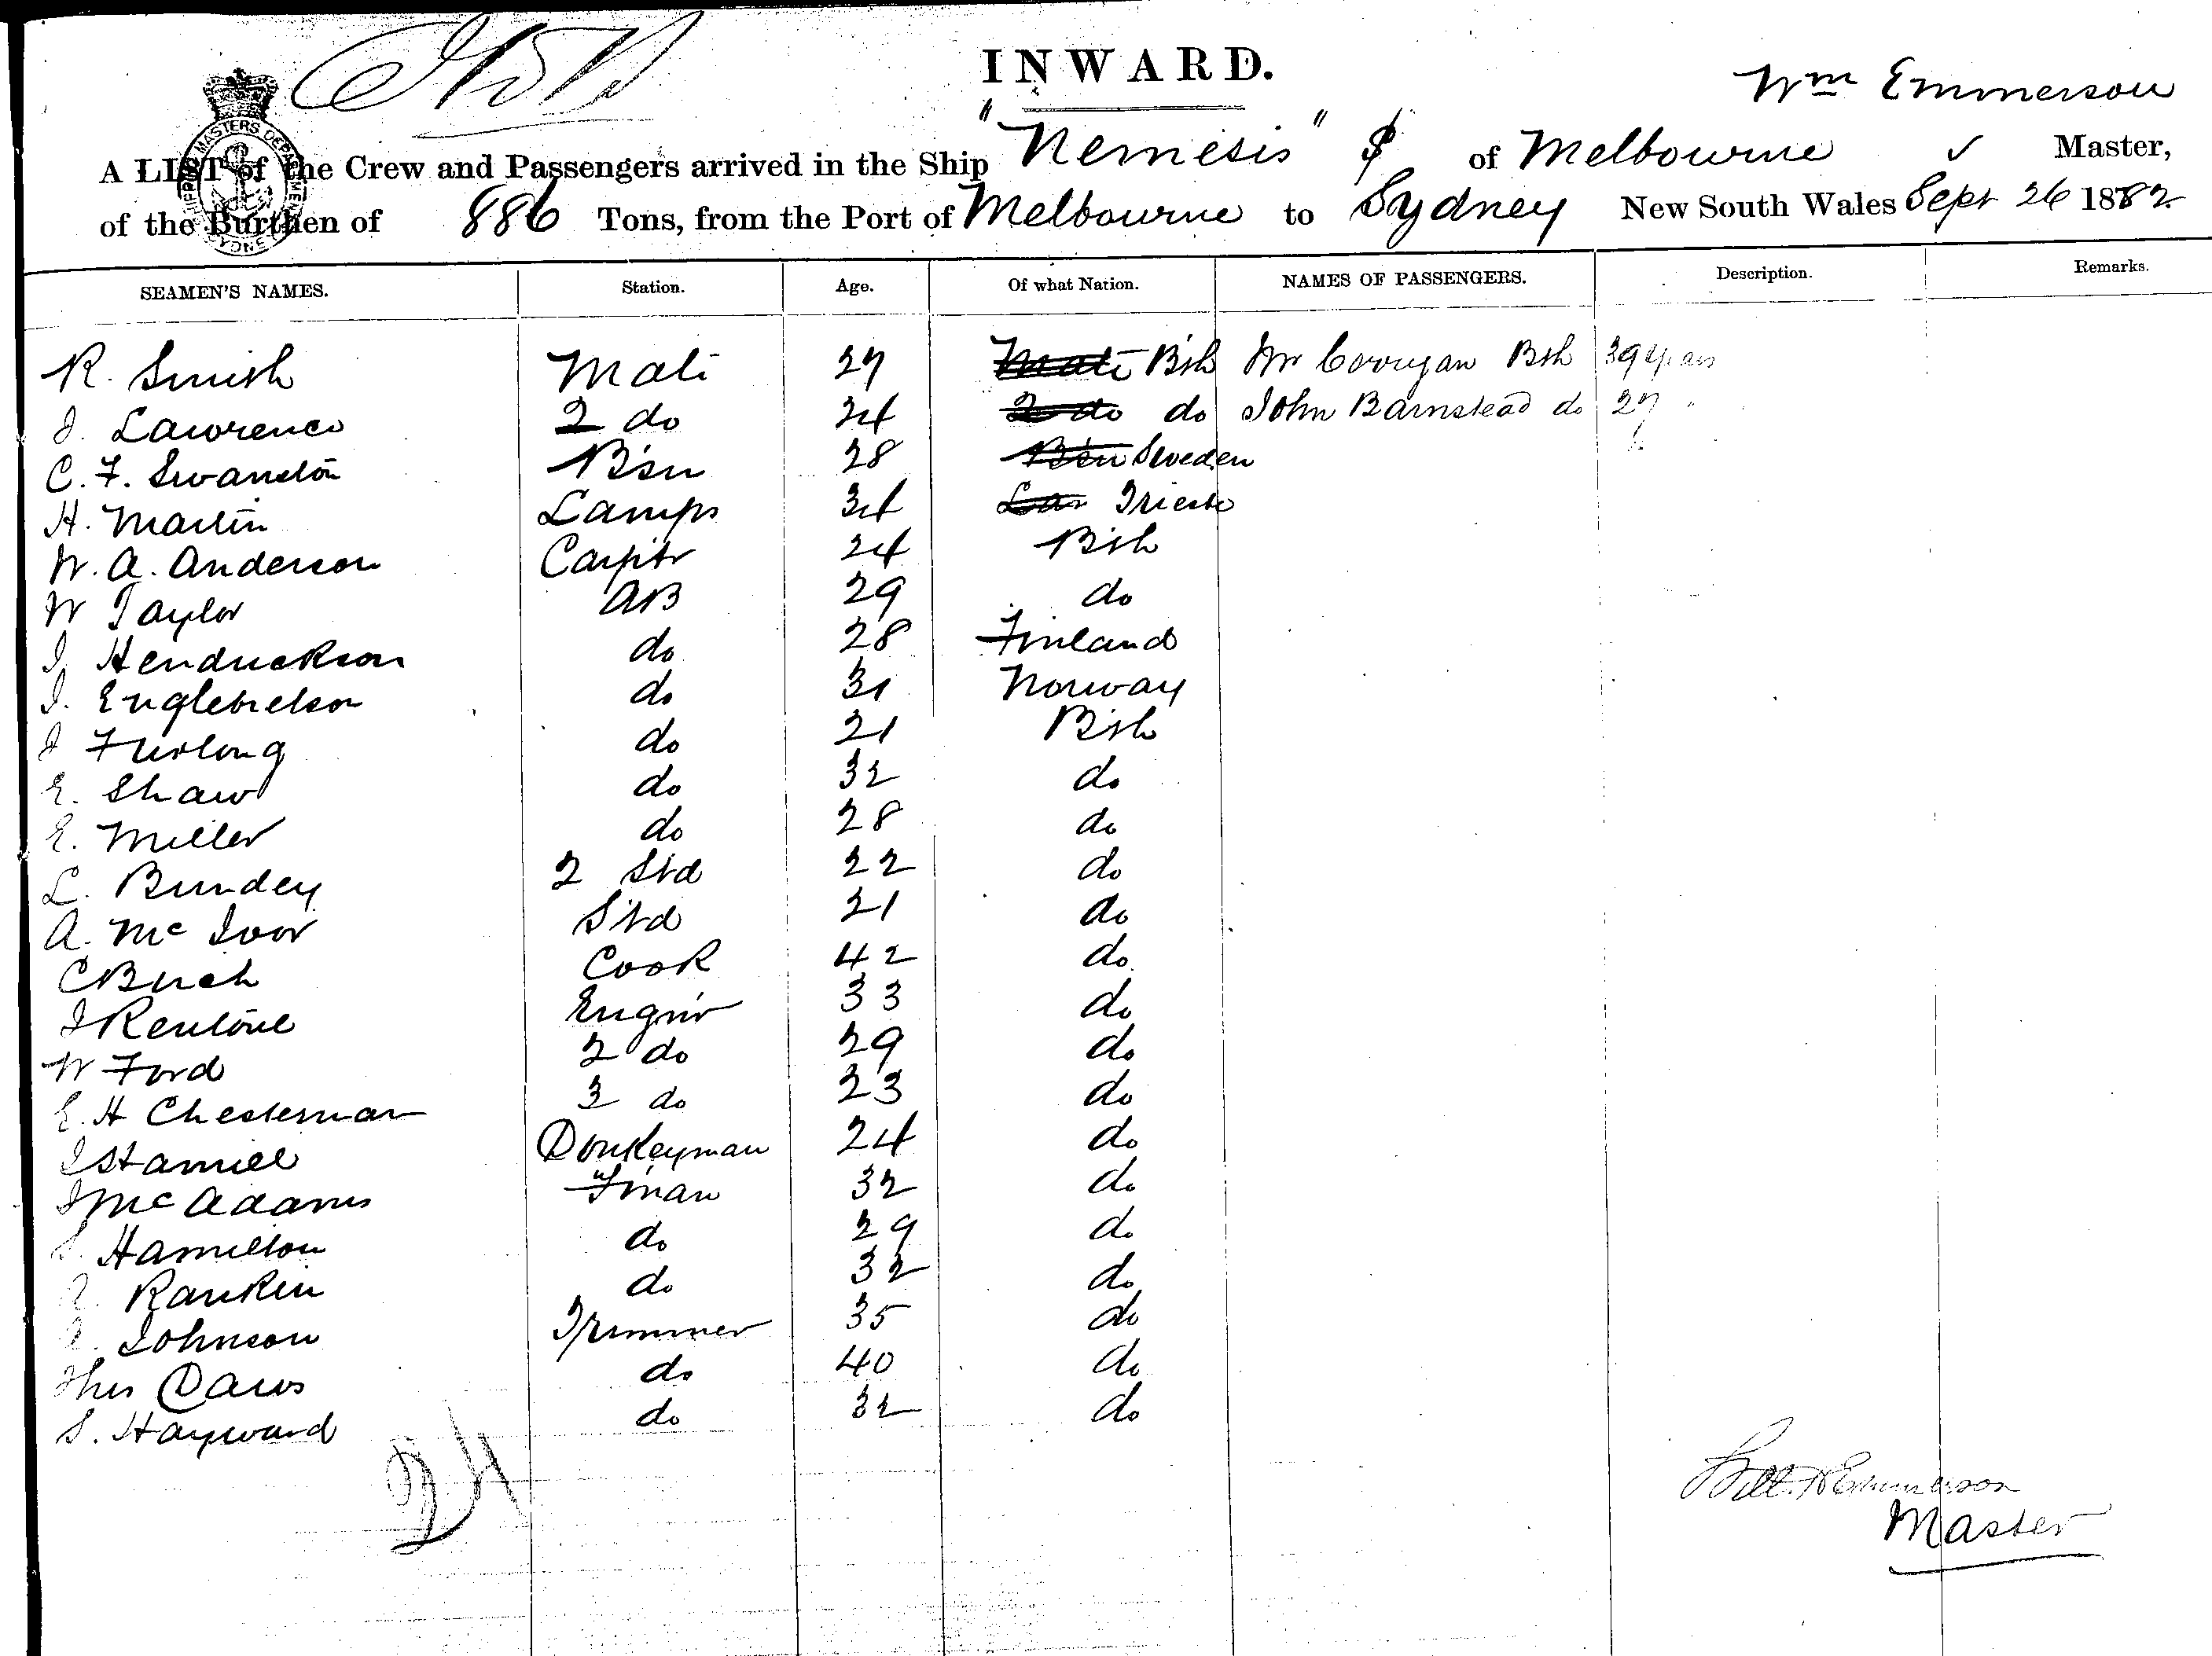 INWARD.
Wm Emmerson
A LIST of the Crew and Passengers arrived in the Ship "Nemesis" $ of Melbourne ✓ Master,
of the Burthen of 886 Tons, from the Port of Melbourne to Sydney New South Wales Sept 26 1882
SEAMEN'S NAMES. Station. Age. Of what Nation. NAMES OF PASSENGERS. Description. Remarks.
R. Smith Mate 27 Mate Bsh Mr Corrigan Bsh 39 years
J. Lawrence 2 do 24 2 do do John Barnstead do 27 "
C. F. Swanston B'sn 28 B'sn Sweden
H. Martin Lamps 34 Lam Trieste
W. A. Anderson Carptr 24 Bsh
W Taylor AB 29 do
J. Hendrickson do 28 Finland
J. Englebretson do 31 Norway
J Furlong do 21 Bsh
E. Shaw do 32 do
E. Miller do 28 do
L. Bundey 2 Std 22 do
A. Mc Ivor Std 21 do
C Buch Cook 42 do
J Rentoul Engnr 33 do
W Ford 2 do 29 do
E. H Chesterman 3 do 23 do
J Hamill Donkeyman 24 do
J Mc Adams F'man 32 do
Hamilton do 29 do
Rankin do 32 do
Johnson Trimmer 35 do
Thos Daws do 40 do
S. Hayward do 32 do
24
Emmerson
Master